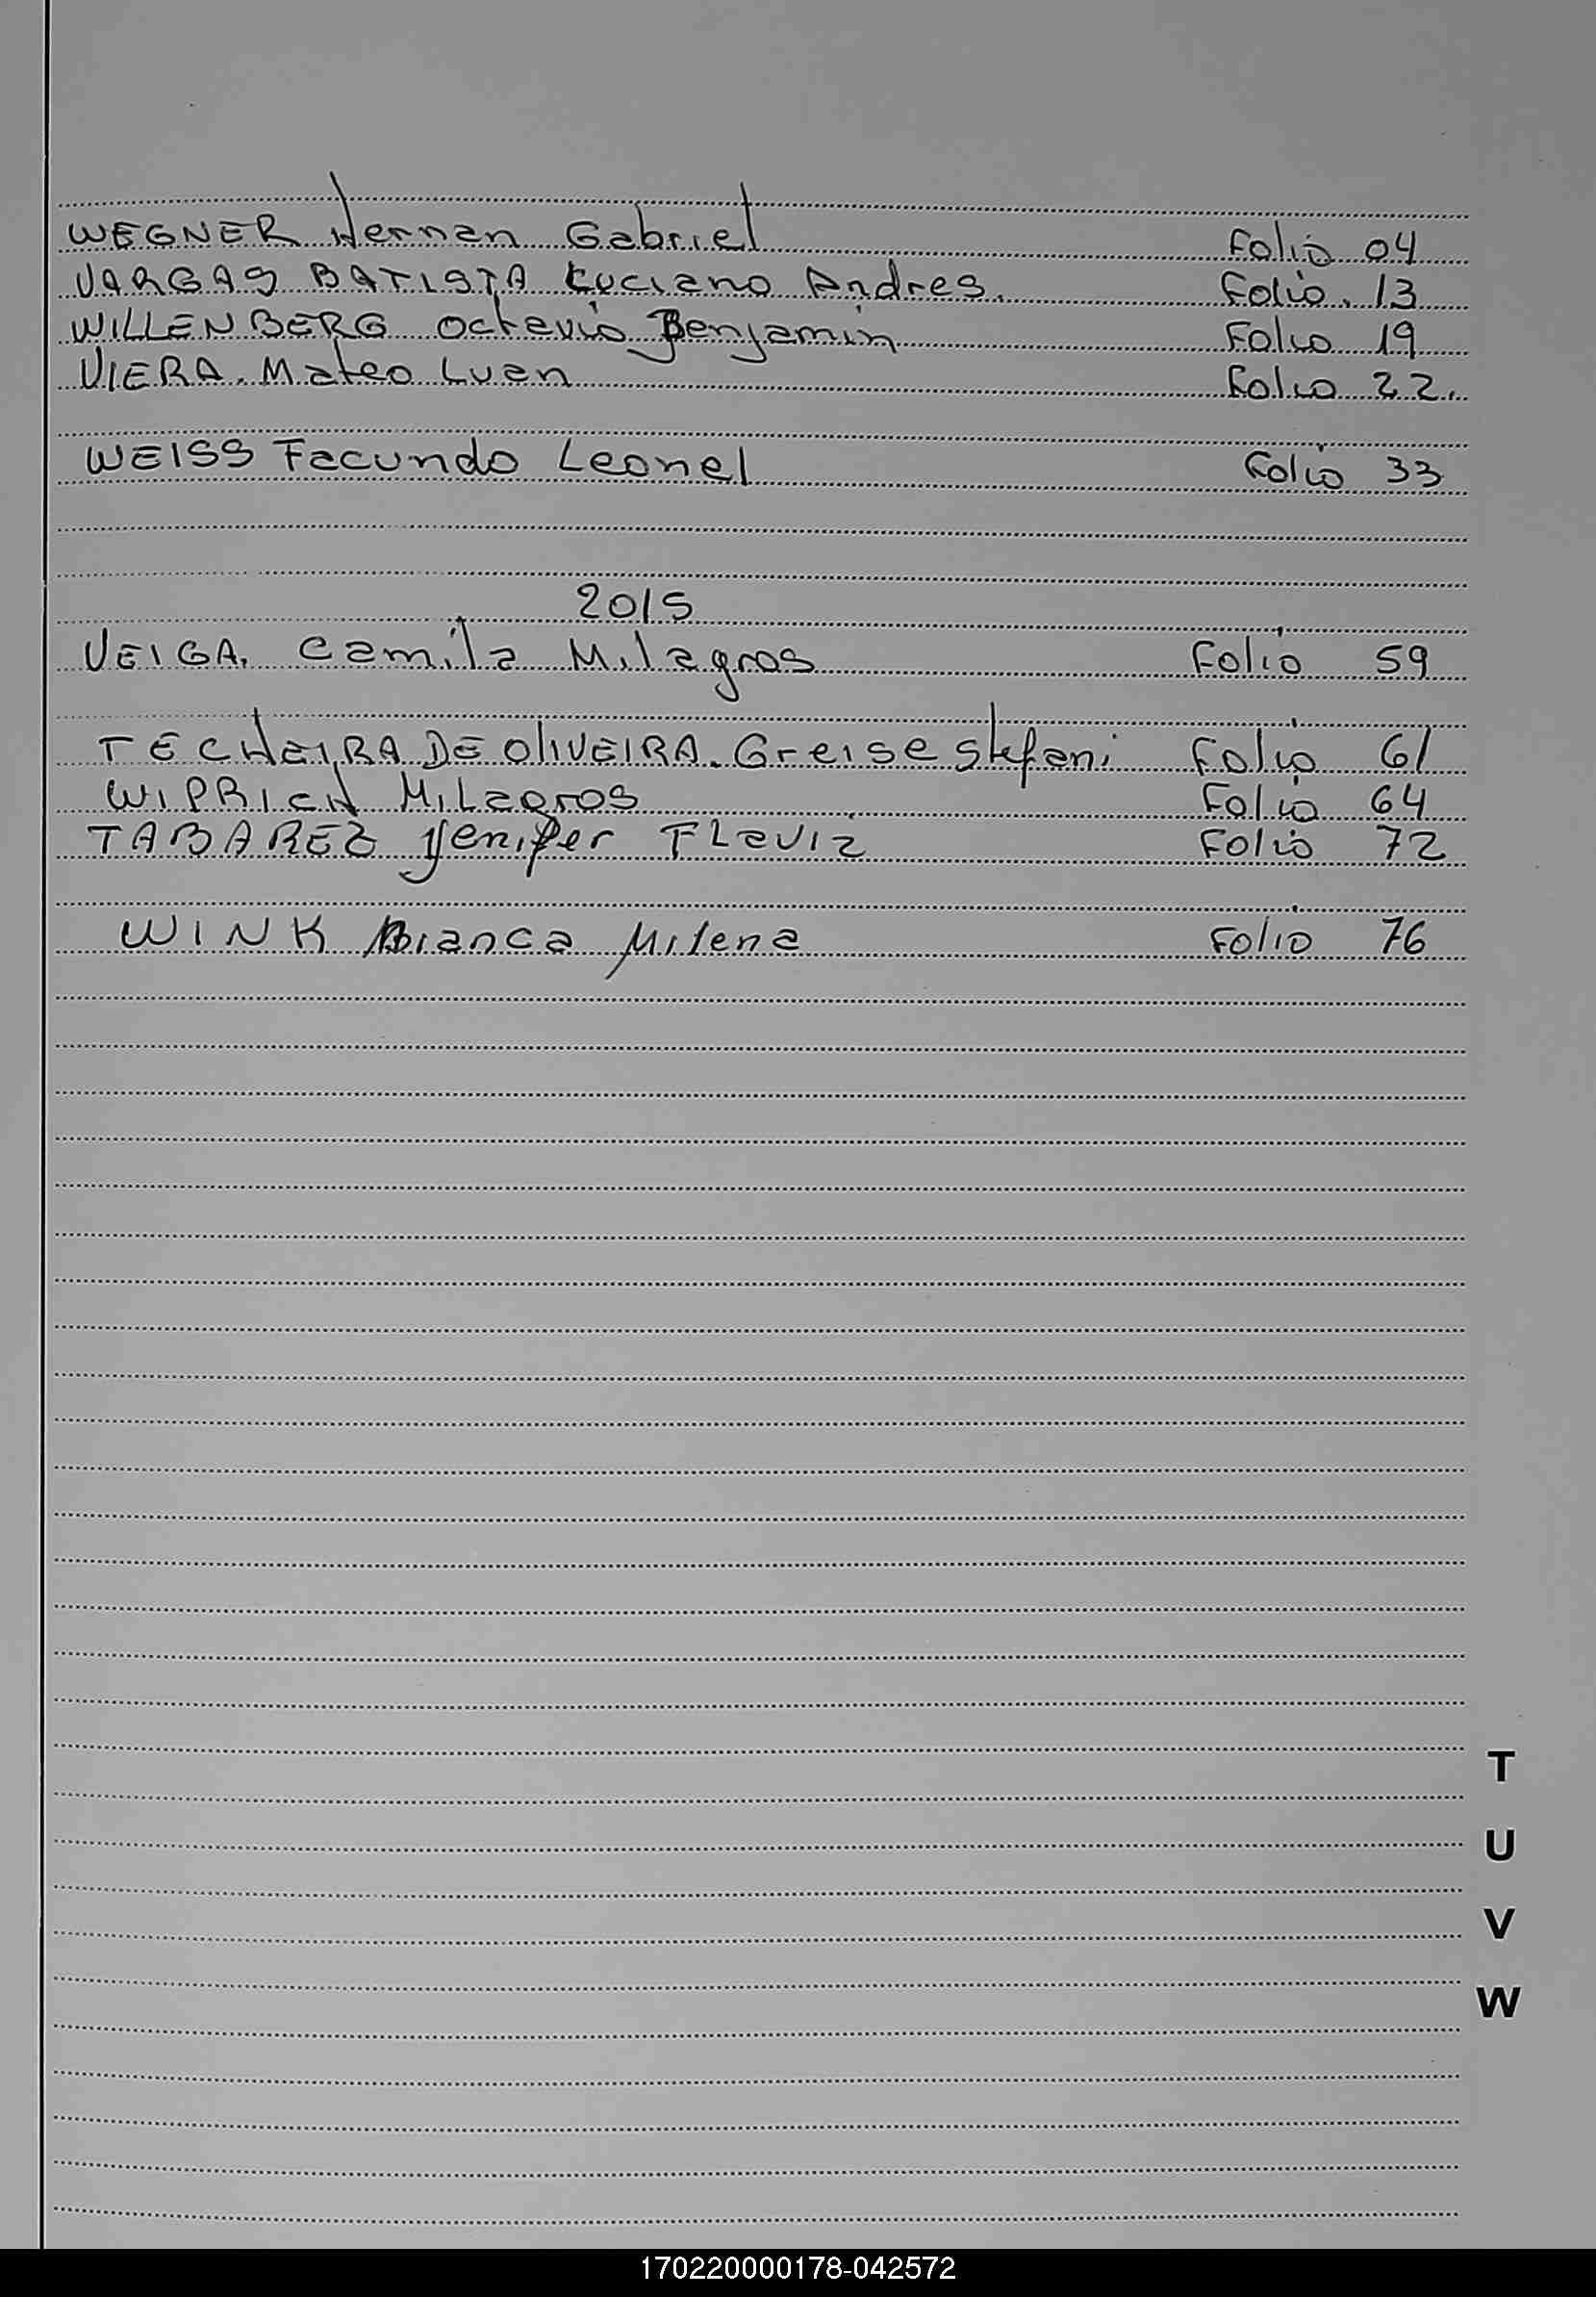 WEGNER Hernan Gabriel Folio 04
VARGAS BATISTA Luciano Andres. Folio. 13
WILLENBERG Octavio Benjamin Folio 19
VIERA. Mateo Luan Folio 22.
WEISS Facundo Leonel Folio 33
2015
VEIGA. Camila Milagros Folio 59
TECHEIRA DE OliVEIRA. Greise Stefani Folio 61
WIPRICH Milagros Folio 64
TABAREZ Yenifer FLavia Folio 72
WINK Bianca Milena Folio 76
T
U
V
W
170220000178-042572